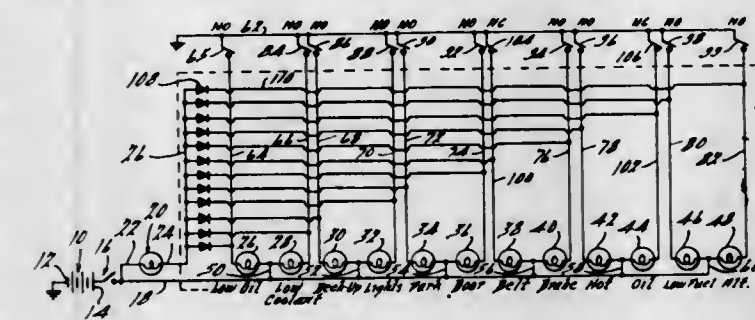 NO 62 NO NO NO NO NO NC NO NO NC NO NO
65 84 86 88 90 92 104 94 96 106 98 99
108 170
26 64 66 68 70 72 74 100 76 78 102 80 82
10 12 14 16 18 20 22 24
26 28 30 32 34 36 38 40 42 44 46 48
50 52 54 56 58 60
Low Oil Low Coolant Back-Up Lights Park Door Belt Brake Hot Oil Low Fuel Alt.